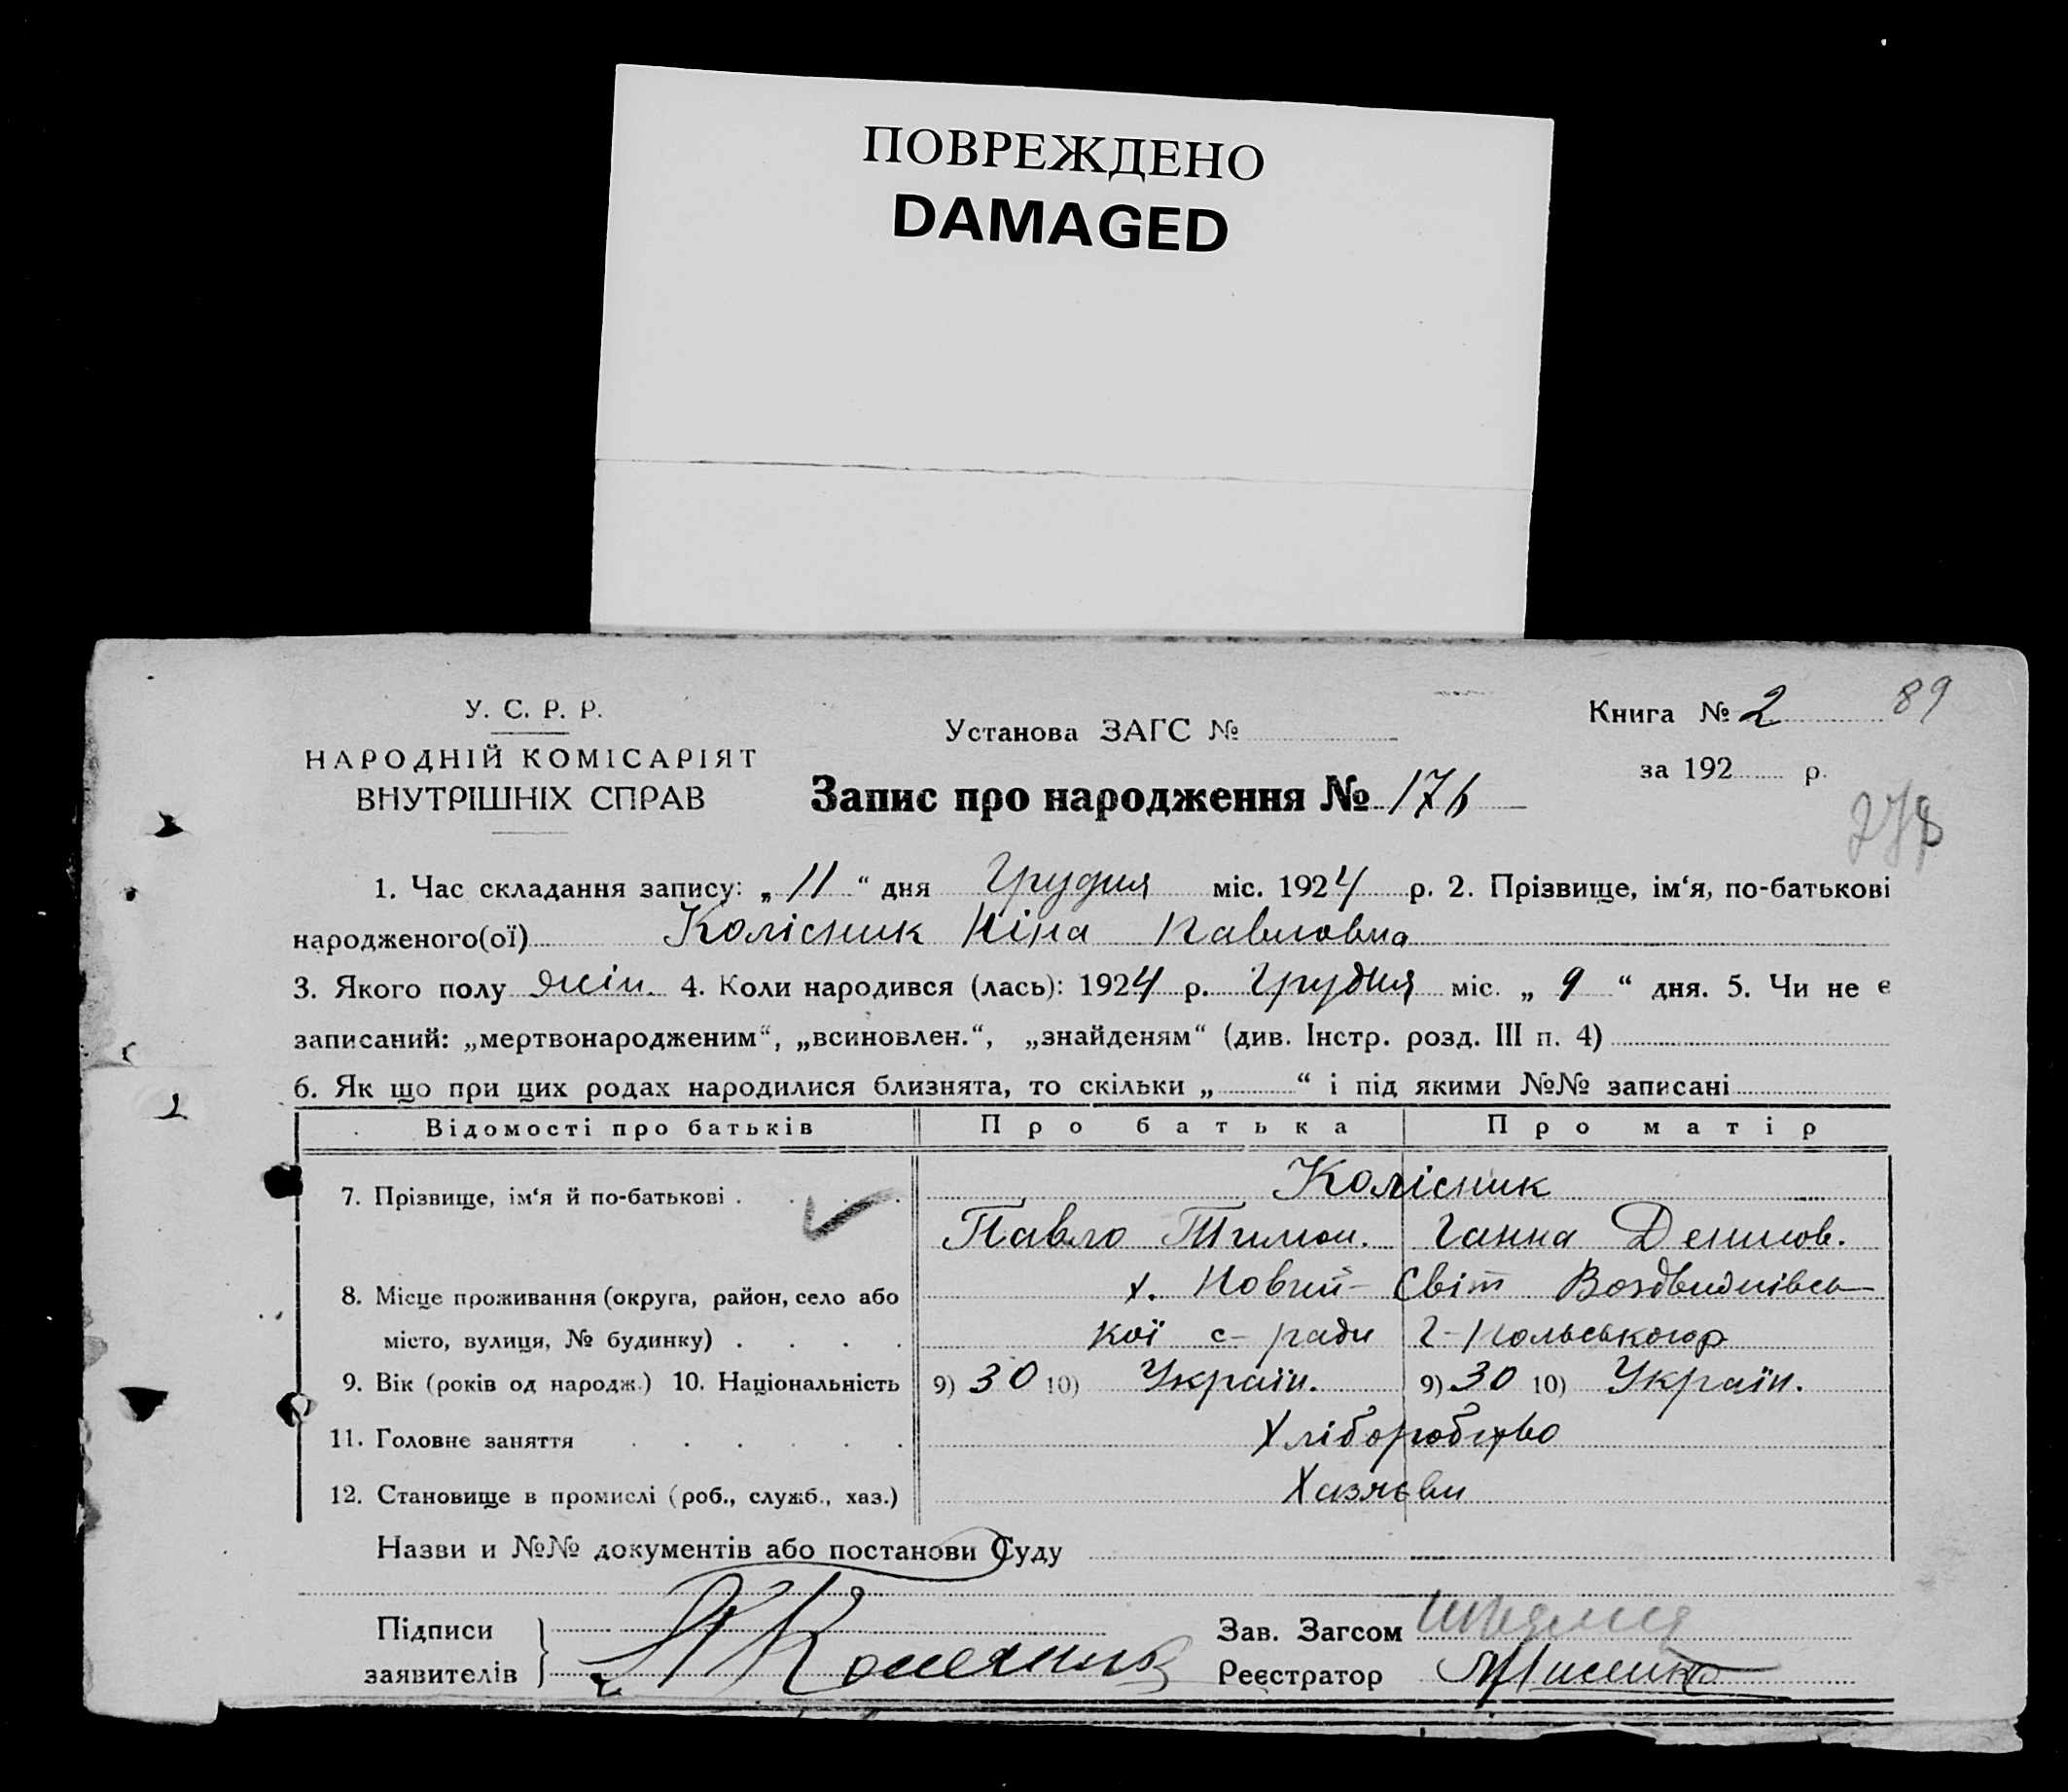 ПОВРЕЖДЕНО
DAMAGED
У. С. Р. Р.
НАРОДНІЙ КОМІСАРІЯТ
ВНУТРІШНІХ СПРАВ
Установа ЗАГС №
Запис про народження № 176
Книга № 2 89
за 192 р.
1. Час складання запису: „ 11 “ дня Грудня міс. 1924 р. 2. Прізвище, ім‘я, по-батькові
народженого(ої) Колісник Ніна Павловна
3. Якого полу жін. 4. Коли народився (лась): 1924 р. Грудня міс. „ 9 “ дня. 5. Чи не є
записаний: „мертвонародженим“, „всиновлен.“, „знайденям“ (див. Інстр. розд. III п. 4)
6. Як що при цих родах народилися близнята, то скільки „ “ і під якими №№ записані
Відомості про батьків Про батька Про матір
7. Прізвище, ім‘я й по-батькові . . . . Колісник
Павло Тимом. Ганна Денисов.
8. Місце проживання (округа, район, село або х. Новий-Світ Воздвижнівсь-
місто, вулиця, № будинку) . . . . кої с-ради Г-Польського р
9. Вік (років од народж.) 10. Національність 9) 30 10) Україн. 9) 30 10) Україн.
11. Головне заняття . . . . . . Хліборобство
12. Становище в промислі (роб., служб., хаз.) Хазяєви
Назви и №№ документів або постанови Суду
Підписи
заявителів
Зав. Загсом
Реєстратор